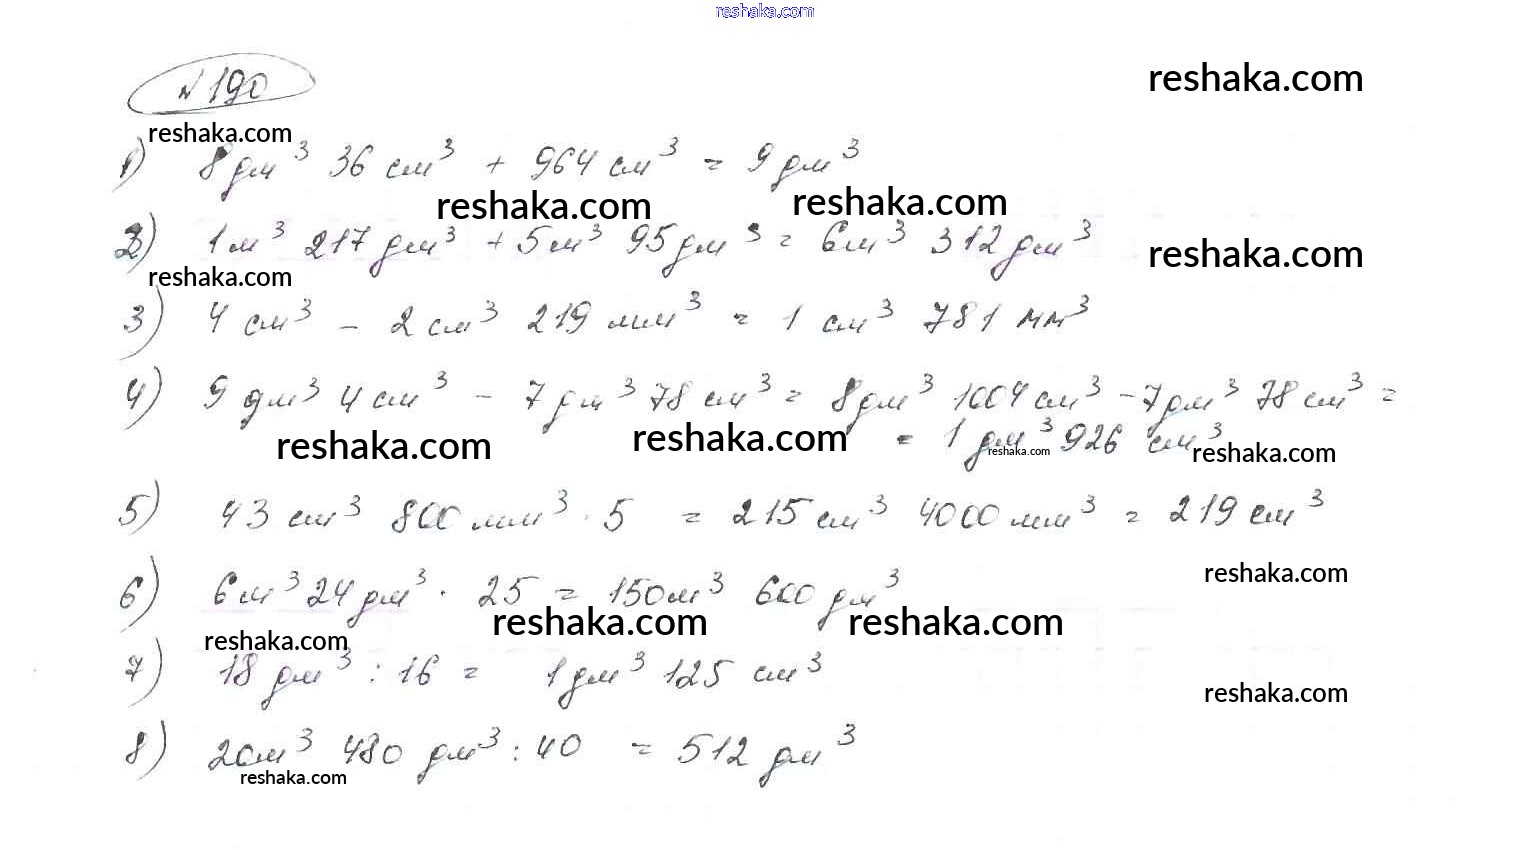 reshaka.com
№ 190
reshaka.com
reshaka.com
1) 8 дм³ 36 см³ + 964 см³ = 9 дм³
reshaka.com reshaka.com
2) 1 м³ 217 дм³ + 5 м³ 95 дм³ = 6 м³ 312 дм³
reshaka.com
reshaka.com
3) 4 см³ - 2 см³ 219 мм³ = 1 см³ 781 мм³
4) 9 дм³ 4 см³ - 7 дм³ 78 см³ = 8 дм³ 1004 см³ - 7 дм³ 78 см³ =
= 1 дм³ 926 см³
reshaka.com reshaka.com reshaka.com reshaka.com
5) 43 см³ 800 мм³ · 5 = 215 см³ 4000 мм³ = 219 см³
reshaka.com
6) 6 м³ 24 дм³ · 25 = 150 м³ 600 дм³
reshaka.com reshaka.com
reshaka.com
7) 18 дм³ : 16 = 1 дм³ 125 см³
reshaka.com
8) 20 м³ 480 дм³ : 40 = 512 дм³
reshaka.com